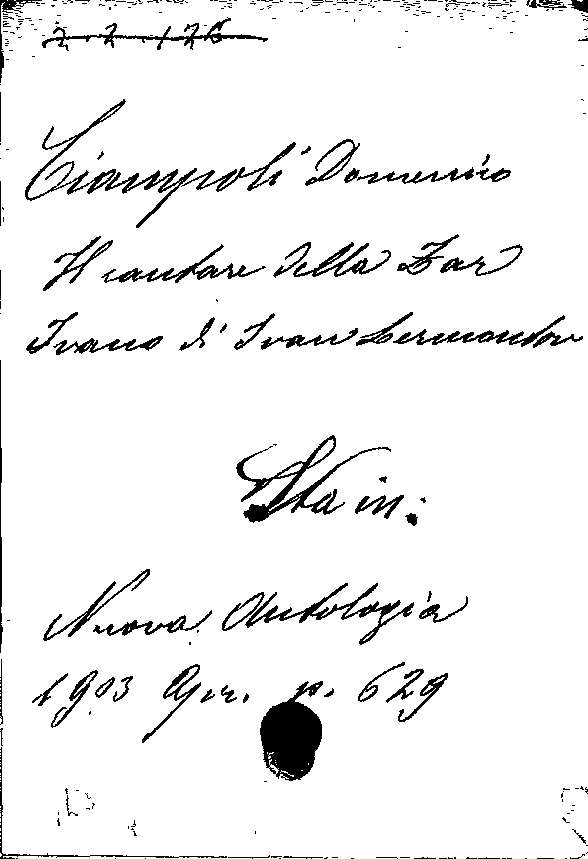 2.2.126
Ciampoli Domenico
Il cantare della Zar
Ivano di Ivan Lermontov
Sta in:
Nuova Antologia
1903 Apr. p. 629